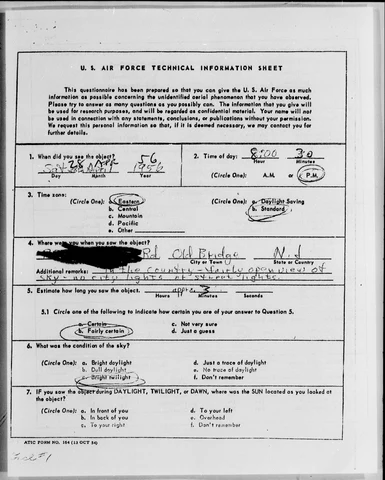 U. S. AIR FORCE TECHNICAL INFORMATION SHEET
This questionnaire has been prepared so that you can give the U. S. Air Force as much
information as possible concerning the unidentified aerial phenomenon that you have observed.
Please try to answer as many questions as you possibly can. The information that you give will
be used for research purposes, and will be regarded as confidential material. Your name will not
be used in connection with any statements, conclusions, or publications without your permission.
We request this personal information so that, if it is deemed necessary, we may contact you for
further details.
1. When did you see the object?
28 Apr 56
1956
Day Month Year
2. Time of day: 8:00 30
Hour Minutes
(Circle One): A.M. or P.M.
3. Time zone:
(Circle One): a. Eastern
b. Central
c. Mountain
d. Pacific
e. Other
(Circle One): a. Daylight Saving
b. Standard
4. Where were you when you saw the object?
Rd. Old Bridge N.J
City or Town State or Country
Additional remarks: In the country - fairly open view of
sky - no city lights or street lights.
5. Estimate how long you saw the object. 3
Hours Minutes Seconds
5.1 Circle one of the following to indicate how certain you are of your answer to Question 5.
a. Certain c. Not very sure
b. Fairly certain d. Just a guess
6. What was the condition of the sky?
(Circle One): a. Bright daylight d. Just a trace of daylight
b. Dull daylight e. No trace of daylight
c. Bright twilight f. Don't remember
7. IF you saw the object during DAYLIGHT, TWILIGHT, or DAWN, where was the SUN located as you looked at
the object?
(Circle One): a. In front of you d. To your left
b. In back of you e. Overhead
c. To your right f. Don't remember
ATIC FORM NO. 164 (13 OCT 54)